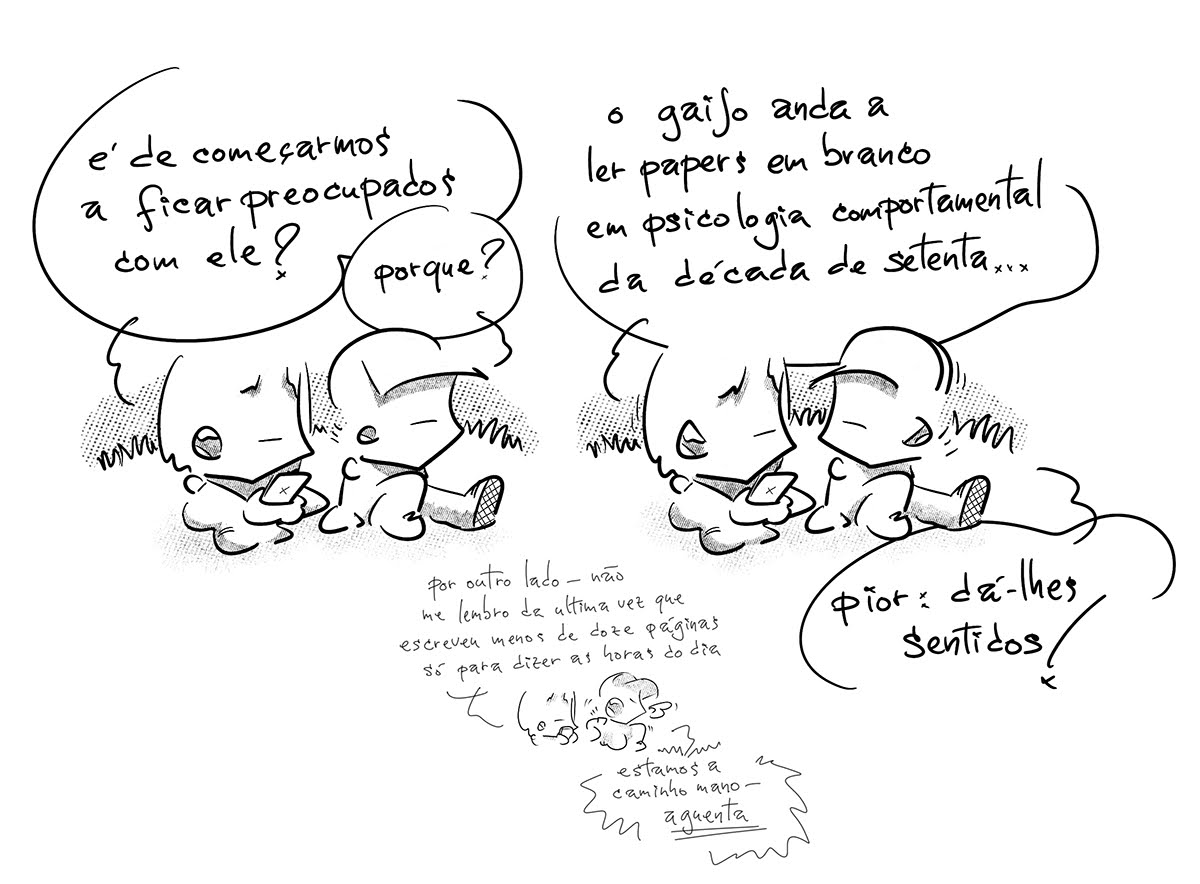 e' de começarmos
a ficar preocupados
com ele?
porque?
o gaijo anda a
ler papers em branco
em psicologia comportamental
da década de setenta...
pior: dá-lhes
sentidos!
por outro lado — não
me lembro da ultima vez que
escreveu menos de doze páginas
só para dizer as horas do dia
estamos a
caminho mano —
aguenta